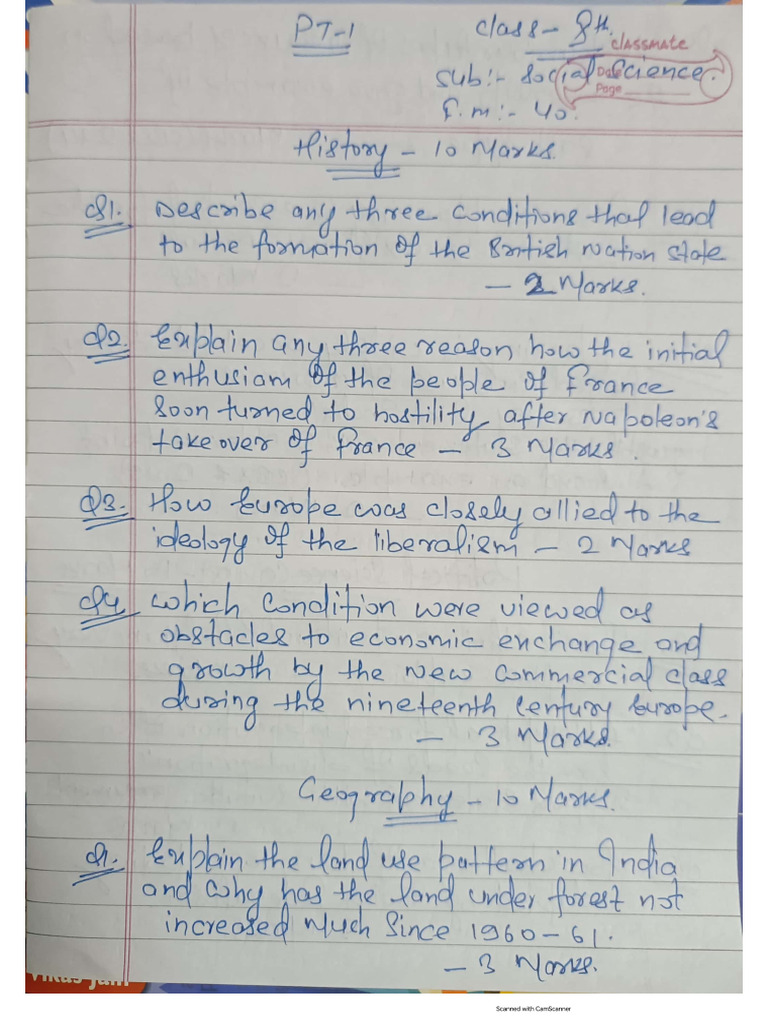 PT-1
Class - 8th.
classmate
Sub:- Social Science.
Date
Page
F.m:- 40.
History - 10 Marks.
Q1. Describe any three conditions that lead
to the formation of the British Nation State
- 2 Marks.
Q2. Explain any three reason how the initial
enthusiam of the people of France
soon turned to hostility after Napoleon's
takeover of france - 3 Marks.
Q3. How Europe was closely allied to the
ideology of the liberalism - 2 Marks
Q4. Which Condition were viewed as
obstacles to economic exchange and
growth by the New Commercial class
during the nineteenth Century Europe.
- 3 Marks.
Geography - 10 Marks.
Q1. Explain the land use pattern in India
and why has the land under forest not
increased Much Since 1960-61.
- 3 Marks.
Vikas Jain
Scanned with CamScanner